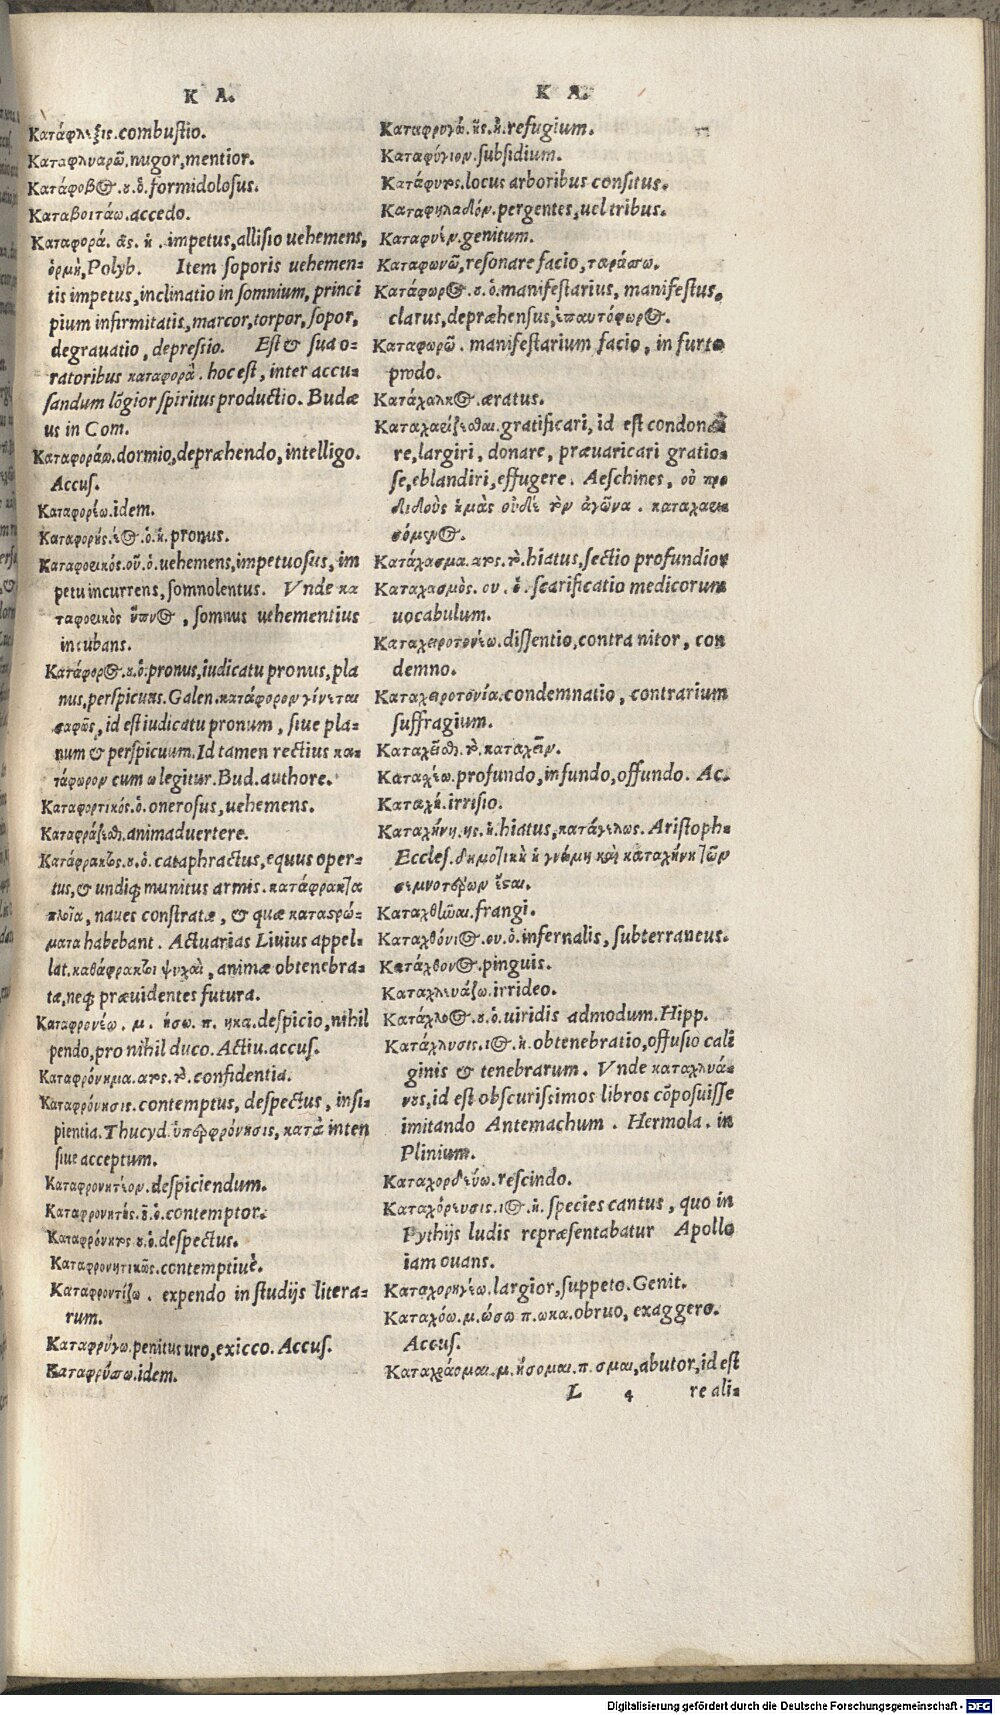 Κ Α.
Κατάφλεξις.combustio.
Καταφλυαρῶ.nugor,mentior.
Κατάφοβος.ου.ὁ.formidolosus.
Καταβοιτάω.accedo.
Καταφορά. ᾶς. ἡ .impetus,allisio uehemens,
ὁρμὴ,Polyb. Item soporis uehemen-
tis impetus,inclinatio in somnium,princi
pium infirmitatis,marcor,torpor,sopor,
degrauatio,depressio. Est & sua o-
ratoribus καταφορὰ. hoc est, inter accu-
sandum lõgior spiritus productio. Budæ
us in Com.
Καταφοράω.dormio,depræhendo,intelligo.
Accus.
Καταφορέω.idem.
Καταφορής.έος.ὁ.ἡ.pronus.
Καταφορικός.οῦ.ὁ.uehemens,impetuosus, im
petu incurrens, somnolentus. Vnde κα
ταφορικὸς ὕπνος, somnus uehementius
incubans.
Κατάφορος.ου.ὁ.pronus,iudicatu pronus,pla
nus,perspicuus.Galen.κατάφορον γίνεται
σαφῶς, id est iudicatu pronum, siue pla-
num & perspicuum.Id tamen rectius κα-
τάφωρον cum ω legitur.Bud.authore.
Καταφορτικός.ὁ.onerosus,uehemens.
Καταφράζεσθαι.animaduertere.
Κατάφρακτος.ου.ὁ.cataphractus,equus oper-
tus,& undiq; munitus armis.κατάφρακτα
πλοῖα, naues constratæ, & quæ καταστρώ-
ματα habebant. Actuarias Liuius appel-
lat.καθάφρακτοι ψυχαὶ, animæ obtenebra-
tæ,neq; præuidentes futura.
Καταφρονέω. μ. ήσω. π. ηκα.despicio,nihil
pendo,pro nihil duco.Actiu.accus.
Καταφρόνημα.ατος.τὸ.confidentia.
Καταφρόνησις.contemptus, despectus, insi-
pientia.Thucyd.ὑπερφρόνησις, κατὰ inten
siue acceptum.
Καταφρονητέον.despiciendum.
Καταφρονητὴς.οῦ.ὁ.contemptor.
Καταφρόνητος.ου.ὁ.despectus.
Καταφρονητικῶς.contemptiuè.
Καταφροντίζω. expendo in studijs litera-
rum.
Καταφρύγω.penitus uro,exicco.Accus.
Καταφρύσσω.idem.
Κ Α.
Καταφυγὰ. ῆς.ἡ.refugium.
Καταφύγιον.subsidium.
Κατάφυτος.locus arboribus consitus.
Καταφυλαδόν.pergentes,uel tribus.
Καταφυέν.genitum.
Καταφωνῶ,resonare facio,ταράσσω.
Κατάφωρος.ου.ὁ.manifestarius, manifestus,
clarus,depræhensus,ἐπαυτόφωρος.
Καταφωρῶ. manifestarium facio, in furto
prodo.
Κατάχαλκος.æratus.
Καταχαρίζεσθαι.gratificari, id est condona
re,largiri, donare, præuaricari gratio-
se,eblandiri,effugere. Aeschines, οὐ προ
διδοὺς ἡμᾶς οὐδὲ τὸν ἀγῶνα. καταχαρι
σόμενος.
Κατάχασμα.ατος.τὸ.hiatus,sectio profundior
Καταχασμὸς. ου. ὁ. scarificatio medicorum
uocabulum.
Καταχειροτονέω.dissentio,contra nitor, con
demno.
Καταχειροτονία.condemnatio, contrarium
suffragium.
Καταχεῖσθαι. τὸ. καταχεῖν.
Καταχέω.profundo,infundo,offundo. Ac.
Καταχή.irrisio.
Καταχήνη.ης.ἡ.hiatus,κατάγελως. Aristoph-
Eccles.δημοτικὴ ἡ γνώμη καὶ καταχήνη τῶν
σεμνοτέρων ἔσται.
Καταχθῶσαι.frangi.
Καταχθόνιος.ου.ὁ.infernalis, subterraneus.
Κατάχθονος.pinguis.
Καταχλευάζω.irrideo.
Κατάχλοος.ου.ὁ.uiridis admodum.Hipp.
Κατάχλυσις.ιος.ἡ.obtenebratio,offusio cali
ginis & tenebrarum. Vnde καταχλυά-
νους,id est obscurissimos libros cõposuisse
imitando Antemachum. Hermola. in
Plinium.
Καταχορδεύω.rescindo.
Καταχόρευσις.ιος.ἡ. species cantus, quo in
Pythijs ludis repræsentabatur Apollo
iam ouans.
Καταχορηγέω.largior,suppeto.Genit.
Καταχόω.μ.ώσω π.ωκα.obruo, exaggero.
Accus.
Καταχράομαι.μ.ήσομαι.π.σμαι,abutor,id est
L 4 re ali-
Digitalisierung gefördert durch die Deutsche Forschungsgemeinschaft - DFG